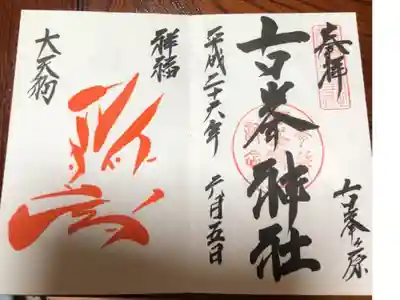 奉拝
古峯ヶ原
古峯神社
平成二十六年
六月五日
祥福
大天狗